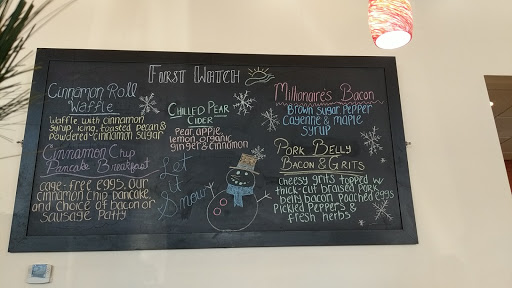 First Watch
Cinnamon Roll
Waffle
Waffle with cinnamon
syrup, icing, toasted pecans &
powdered-cinnamon sugar
Cinnamon Chip
Pancake Breakfast
cage-free eggs, our
cinnamon chip pancake,
and choice of bacon or
sausage patty
Chilled Pear
Cider
Pear, apple,
lemon, organic
ginger & cinnamon
Let
it
Snow
Millionaire's Bacon
Brown sugar, pepper
Cayenne & maple
syrup
Pork Belly
Bacon & Grits
Cheesy grits topped w/
thick-cut braised pork
belly bacon poached eggs
Pickled Peppers &
fresh herbs